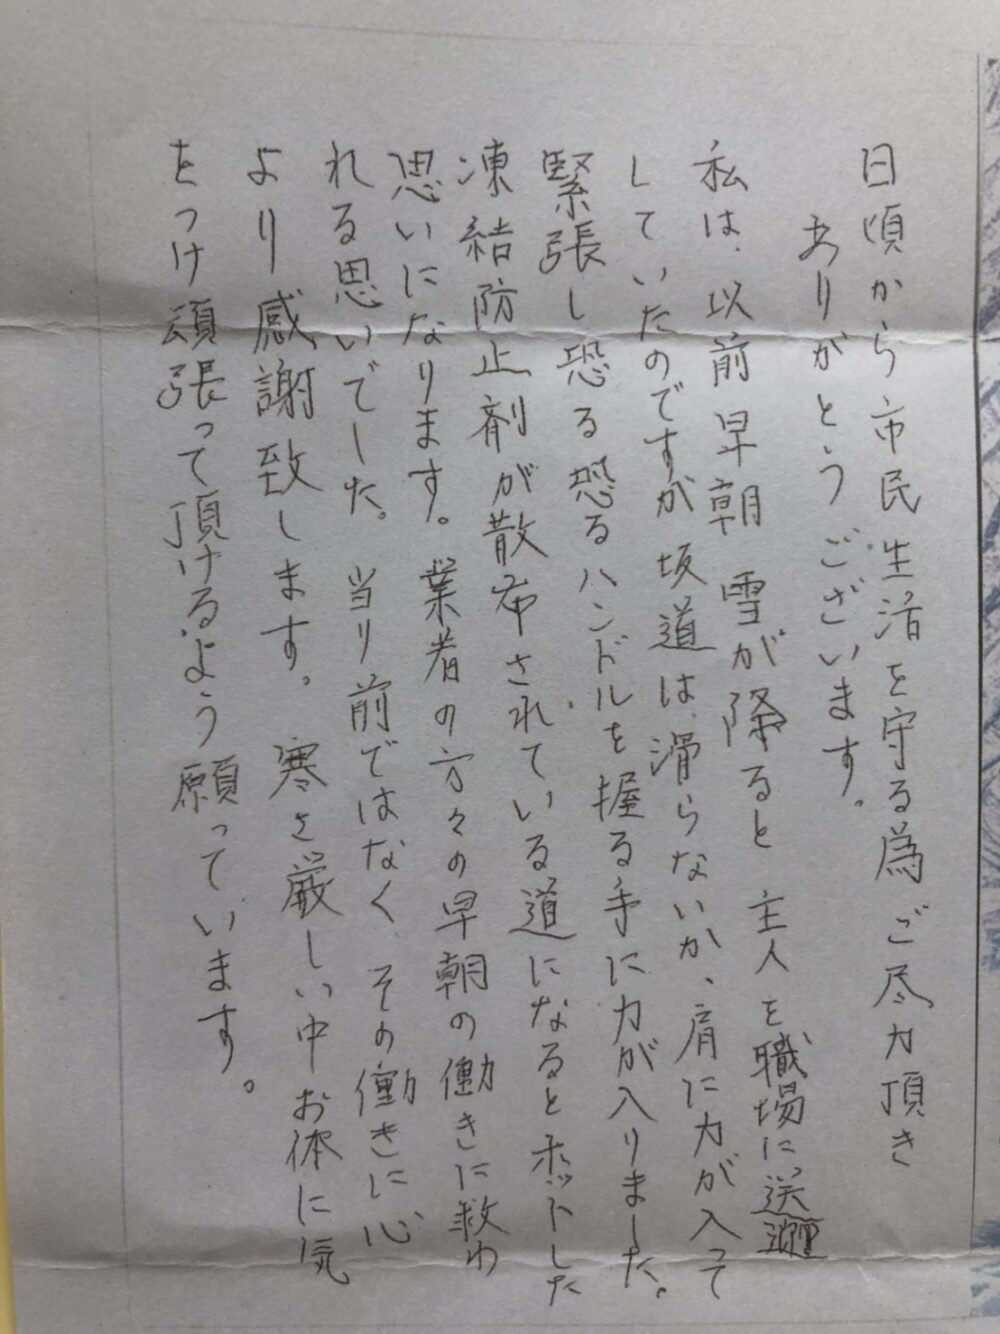 日頃から市民生活を守る為ご尽力頂き
ありがとうございます。
私は、以前早朝 雪が降ると 主人を職場に送迎
していたのですが坂道は滑らないか、肩に力が入って
緊張し恐る恐るハンドルを握る手に力が入りました。
凍結防止剤が散布されている道になるとホットした
思いになります。業者の方々の早朝の働きに救わ
れる思いでした。当り前ではなく その働きに心
より感謝致します。 寒さ厳しい中お体に気
をつけ頑張って頂けるよう願っています。